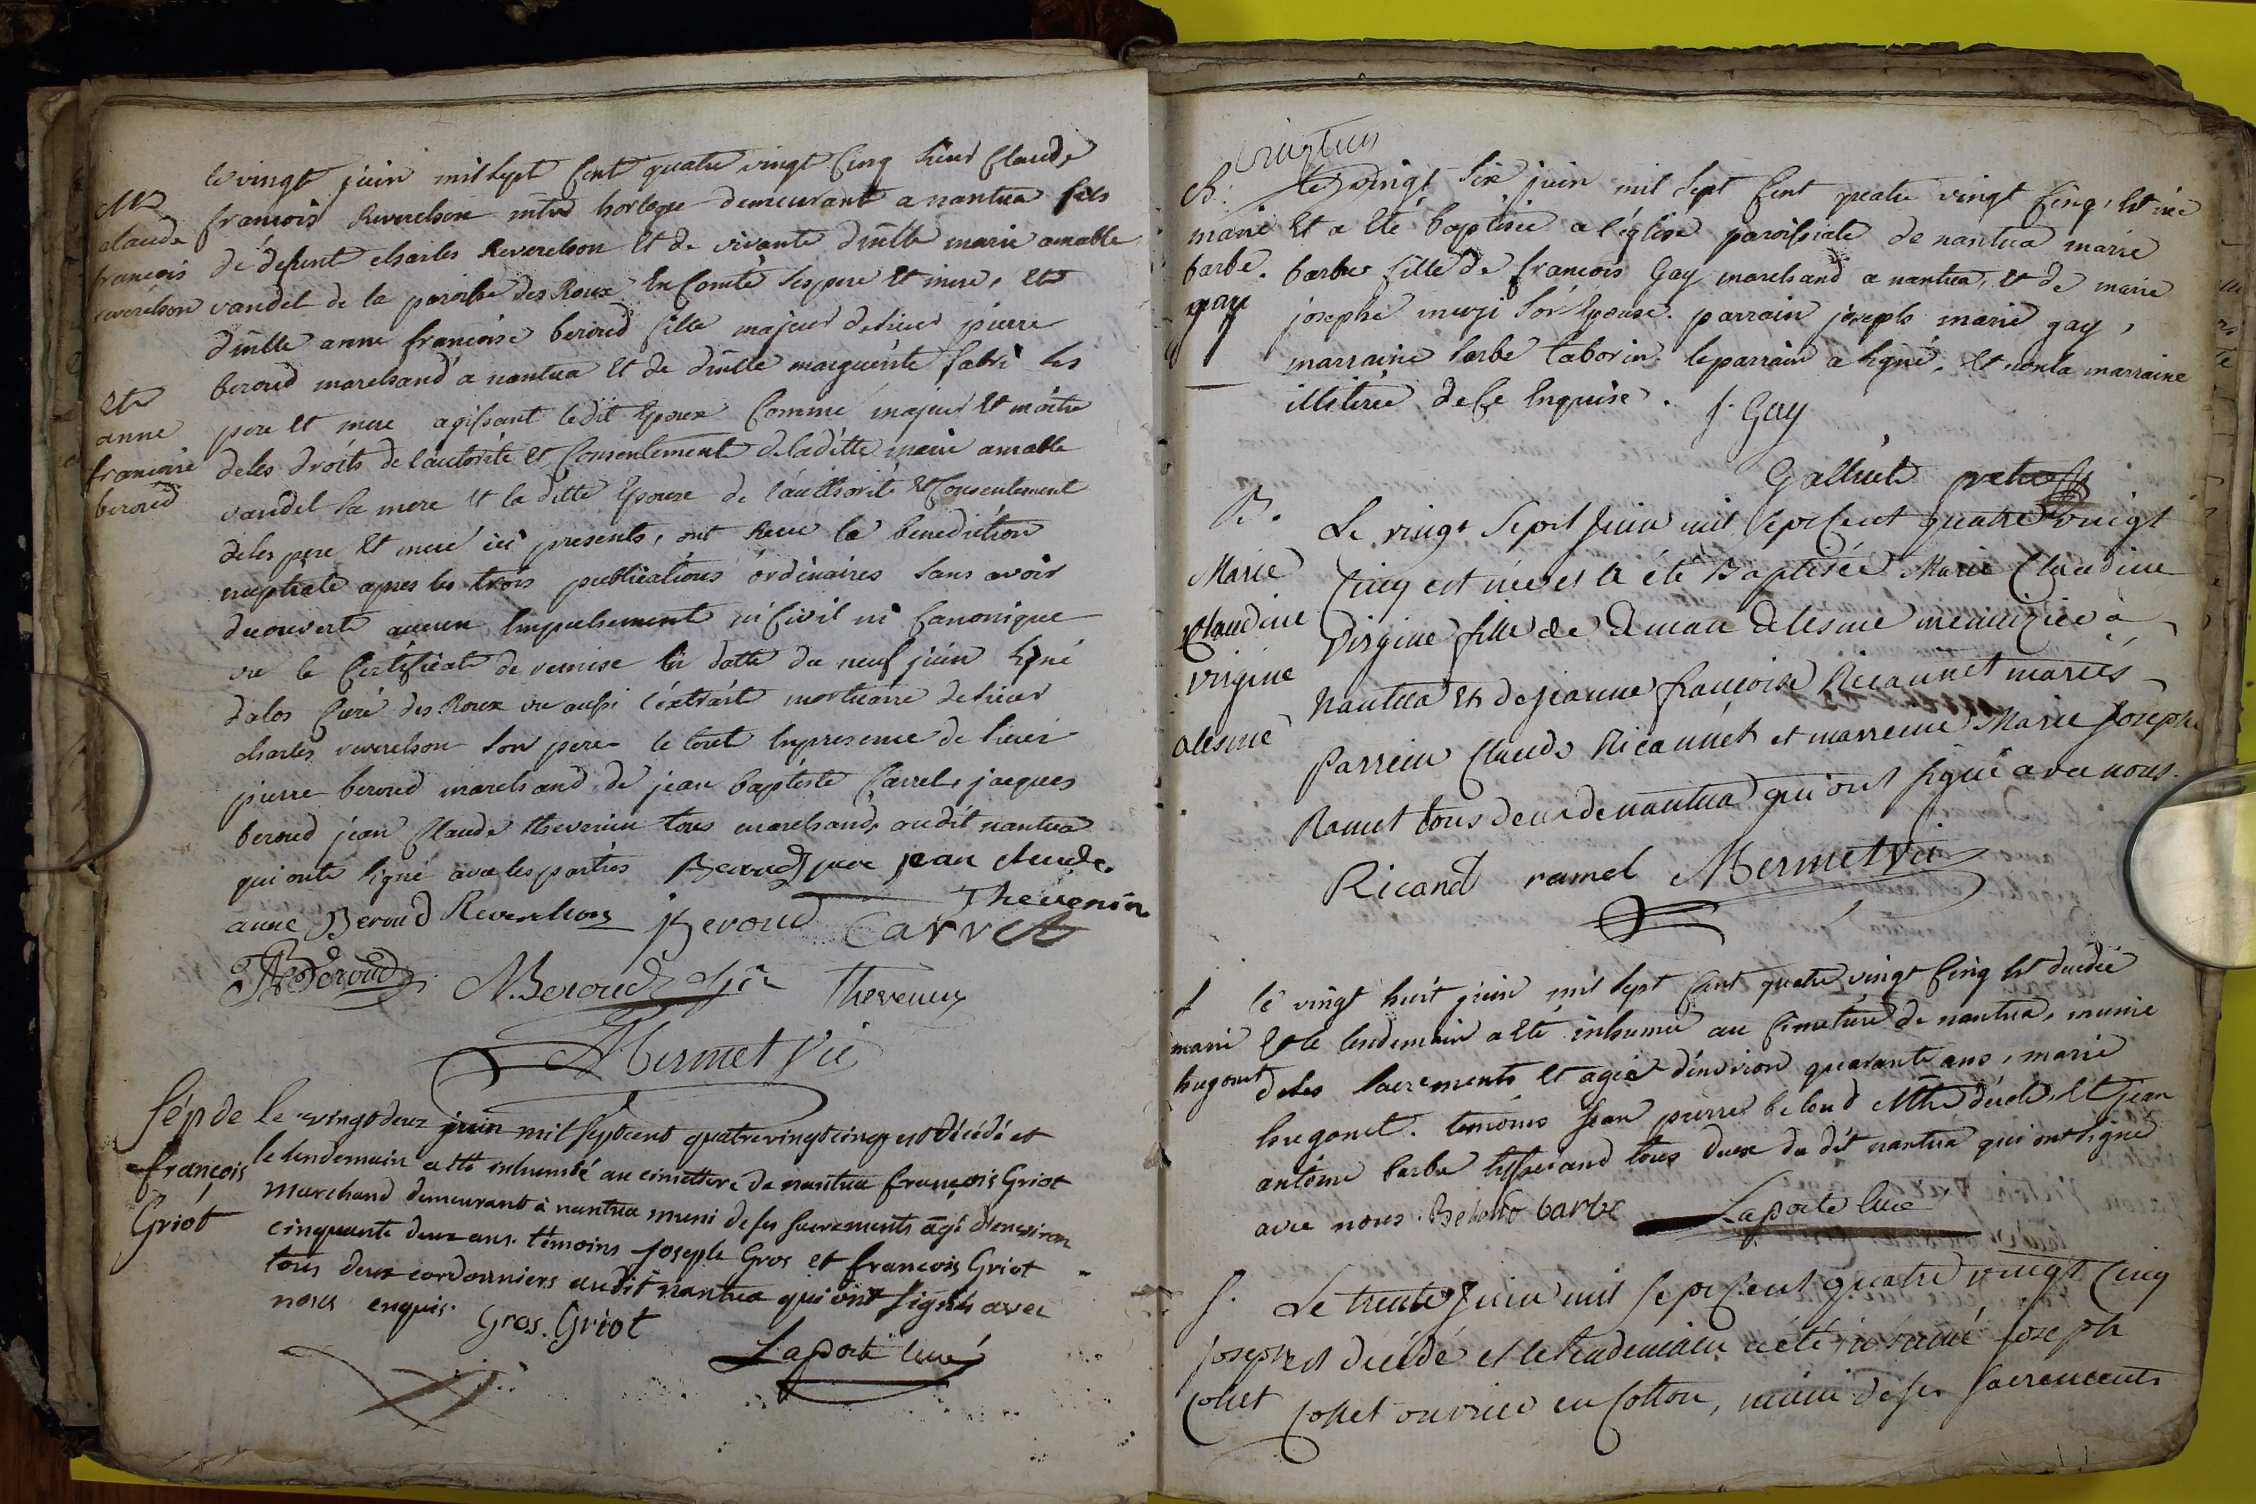 M
claude
françois
reverchon
et
anne
françoise
beroud
le vingt juin mil sept cent quatre vingt cinq sieur Claude
françois Reverchon mtre horloger demeurant a nantua fils
de défunt charles Reverchon et de vivante dmlle marie amable
vandel de la paroisse des Roux en Comté ses pere et mere, et
dmlle anne françoise beroud fille majeur de sieur pierre
beroud marchand a nantua et de dmlle marguerite fabri ses
pere et mere agissant ledit Epoux Comme majeur et maitre
de ses droits de l'autorité et Consentement de laditte marie amable
vandel sa mere et la ditte Epouse de l'authorité et Consentement
de ses pere et mere ici presents, ont Recu la benediction
nuptiale apres les trois publications ordinaires sans avoir
decouverte aucun Empechement ni Civil ni Canonique
vu le Certificat de remise en datte du neuf juin signé
dalos Curé des Roux vu aussi l'extrait mortuaire de sieur
charles reverchon son pere le tout En presence de sieur
pierre beroud marchand de jean baptiste Carrel, jacques
beroud jean Claude thevenin tous marchands audit nantua
qui onts signé avec les parties Beroud pere jean claude
Thevenin
anne Beroud Reverchon j Beroud Carrel
Beroud M. Beroud Thevenin
Mermet Vic
sép de
françois
Griot
le vingt deux juin mil sept cent quatre vingt cinq est décédé et
le lendemain a été inhumé au cimettere de nantua françois Griot
marchand demeurant à nantua muni de ses sacrements agé d'environ
cinquante deux ans. témoins joseph Gros et françois Griot
tous deux cordonniers audit nantua qui ont signés avec
nous enquis. Gros. Griot
Laporte curé
vingt cinq
B.
marie
barbe
gay
le vingt six juin mil sept Cent quatre vingt Cinq, est née
et a été baptisée a l'église paroissiale de nantua marie
barbe fille de françois Gay marchand a nantua, et de marie
josephe murzi son Epouse. parrain joseph marie gay,
marraine barbe taborin. le parrain a signé, et non la marraine
illitérée de ce Enquise. J. Gay
Galliet pretre
B.
Marie
Claudine
Virgine
alesme
Le vingt Sept Juin mil Sept Cent quatre vingt
Cinq est née et a été Baptisée Marie Claudine
Virgine fille de Aimau Alesme menuizier à
Nantua et de jeanne françoise Ricannet mariés
Parrein Claude Ricannet et marreine Marie Josephe
Ramet tous deux de nantua qui ont signé avec nous.
Ricand ramel Mermet Vic
S
marie
hugonet
le vingt huit juin mil sept Cent quatre vingt Cinq est decédée
et le lendemain a été inhumée au Cimetiere de nantua, munie
de ses sacrements et agée d'environ quarante ans, marie
hugonet. temoins jean pierre beloud mtre d'école, et jean
antoine barbe tisserand tous deux du dit nantua qui ont signé
avec nous. Beloud barbe Laporte Curé
S.
joseph
Collet
Le trente Juin mil Sept Cent quatre vingt Cinq
est décédé et le lendemain a été inhumé Joseph
Collet ouvrier en Cotton, muni de ses Sacrements